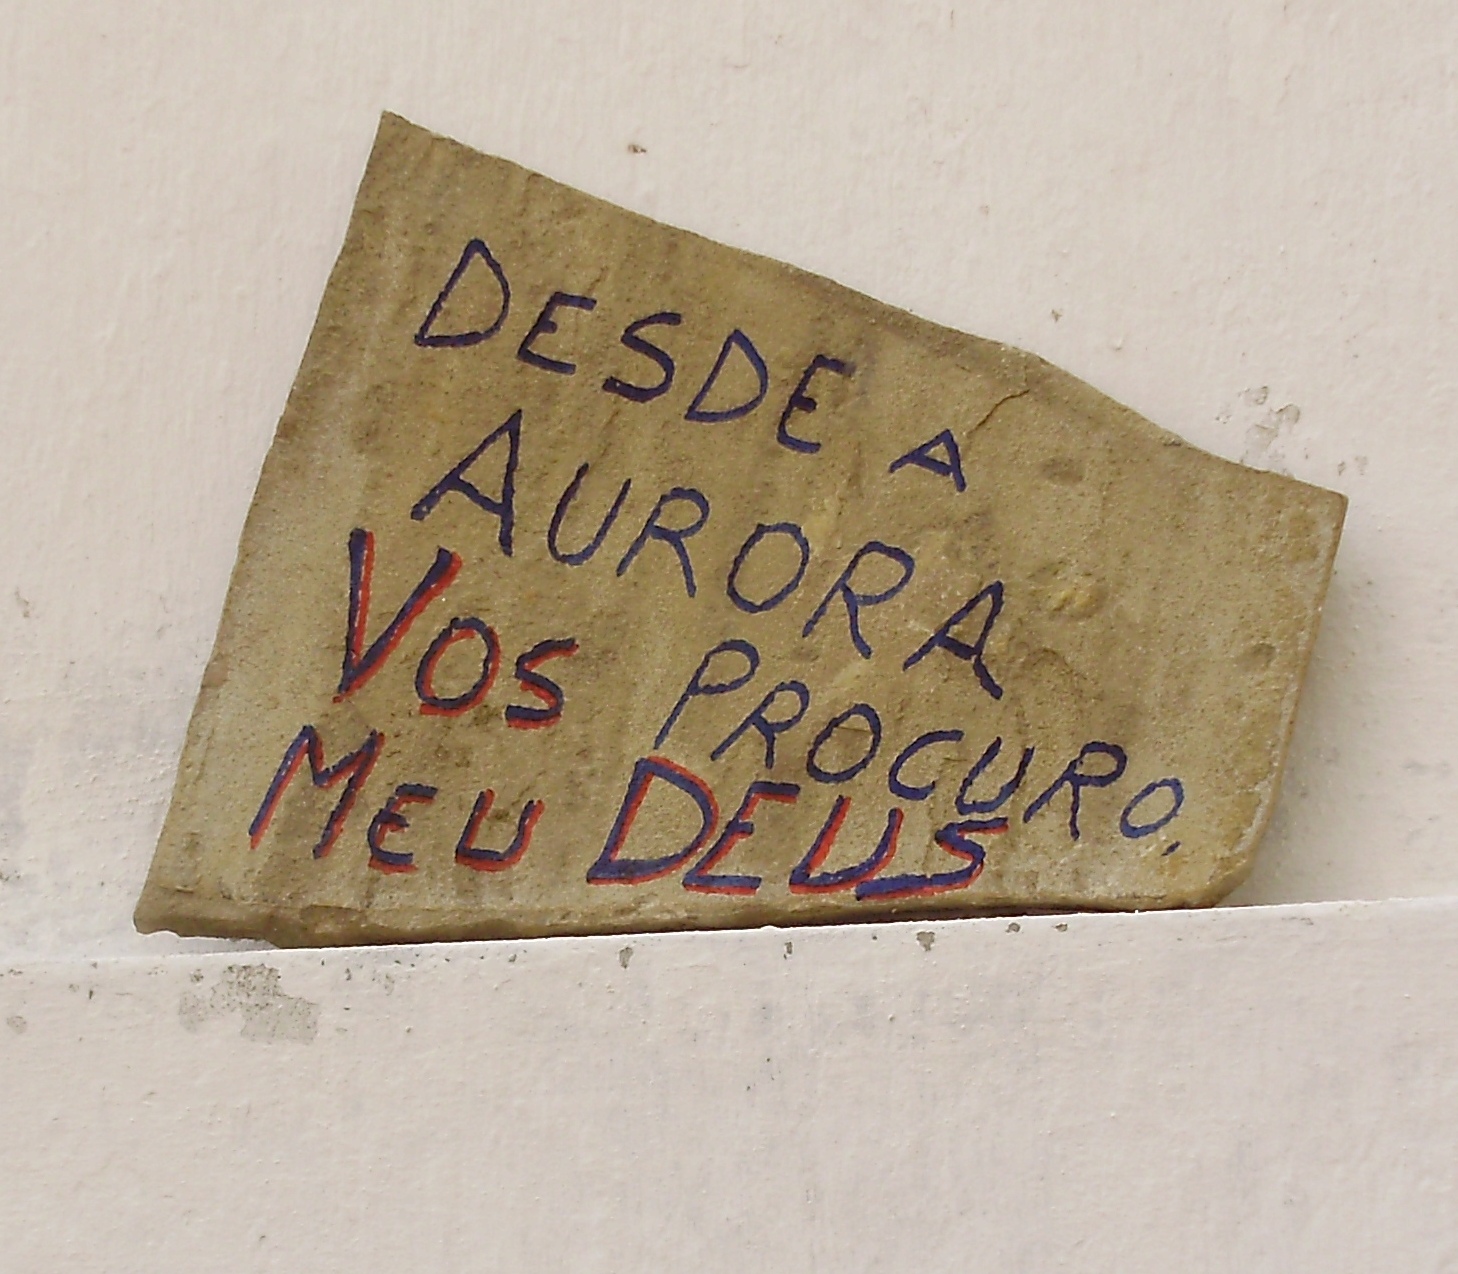 DESDE A
AURORA
VOS PROCURO.
MEU DEUS